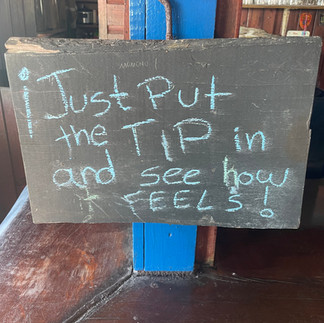 ¡Just Put
the TIP in
and see how
it FEELS!